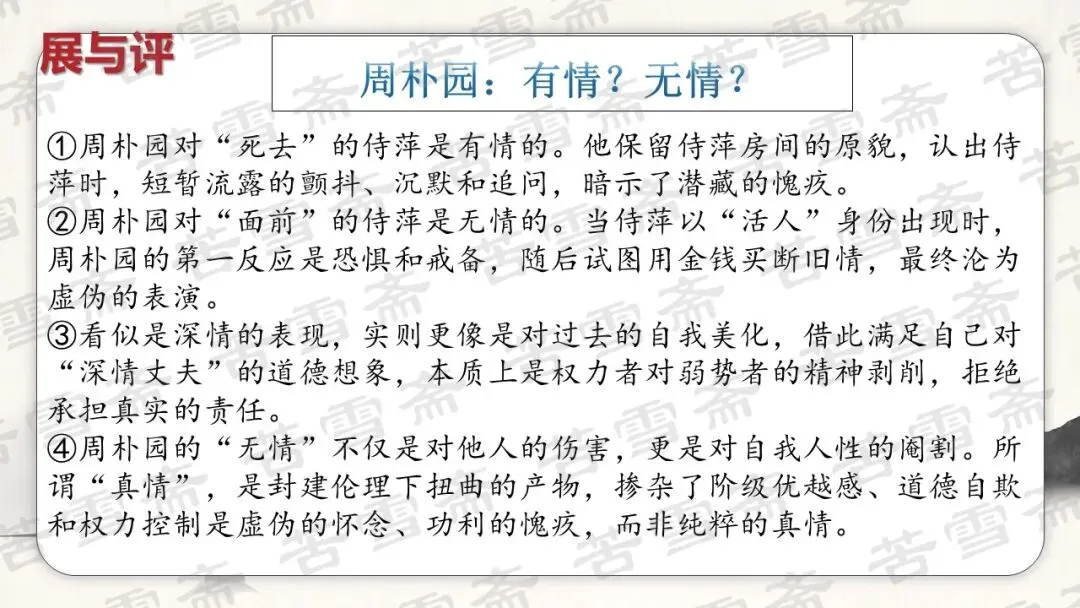 展与评
周朴园：有情？无情？
①周朴园对“死去”的侍萍是有情的。他保留侍萍房间的原貌，认出侍
萍时，短暂流露的颤抖、沉默和追问，暗示了潜藏的愧疚。
②周朴园对“面前”的侍萍是无情的。当侍萍以“活人”身份出现时，
周朴园的第一反应是恐惧和戒备，随后试图用金钱买断旧情，最终沦为
虚伪的表演。
③看似是深情的表现，实则更像是对过去的自我美化，借此满足自己对
“深情丈夫”的道德想象，本质上是权力者对弱势者的精神剥削，拒绝
承担真实的责任。
④周朴园的“无情”不仅是对他人的伤害，更是对自我人性的阉割。所
谓“真情”，是封建伦理下扭曲的产物，掺杂了阶级优越感、道德自欺
和权力控制是虚伪的怀念、功利的愧疚，而非纯粹的真情。
苦雪斋